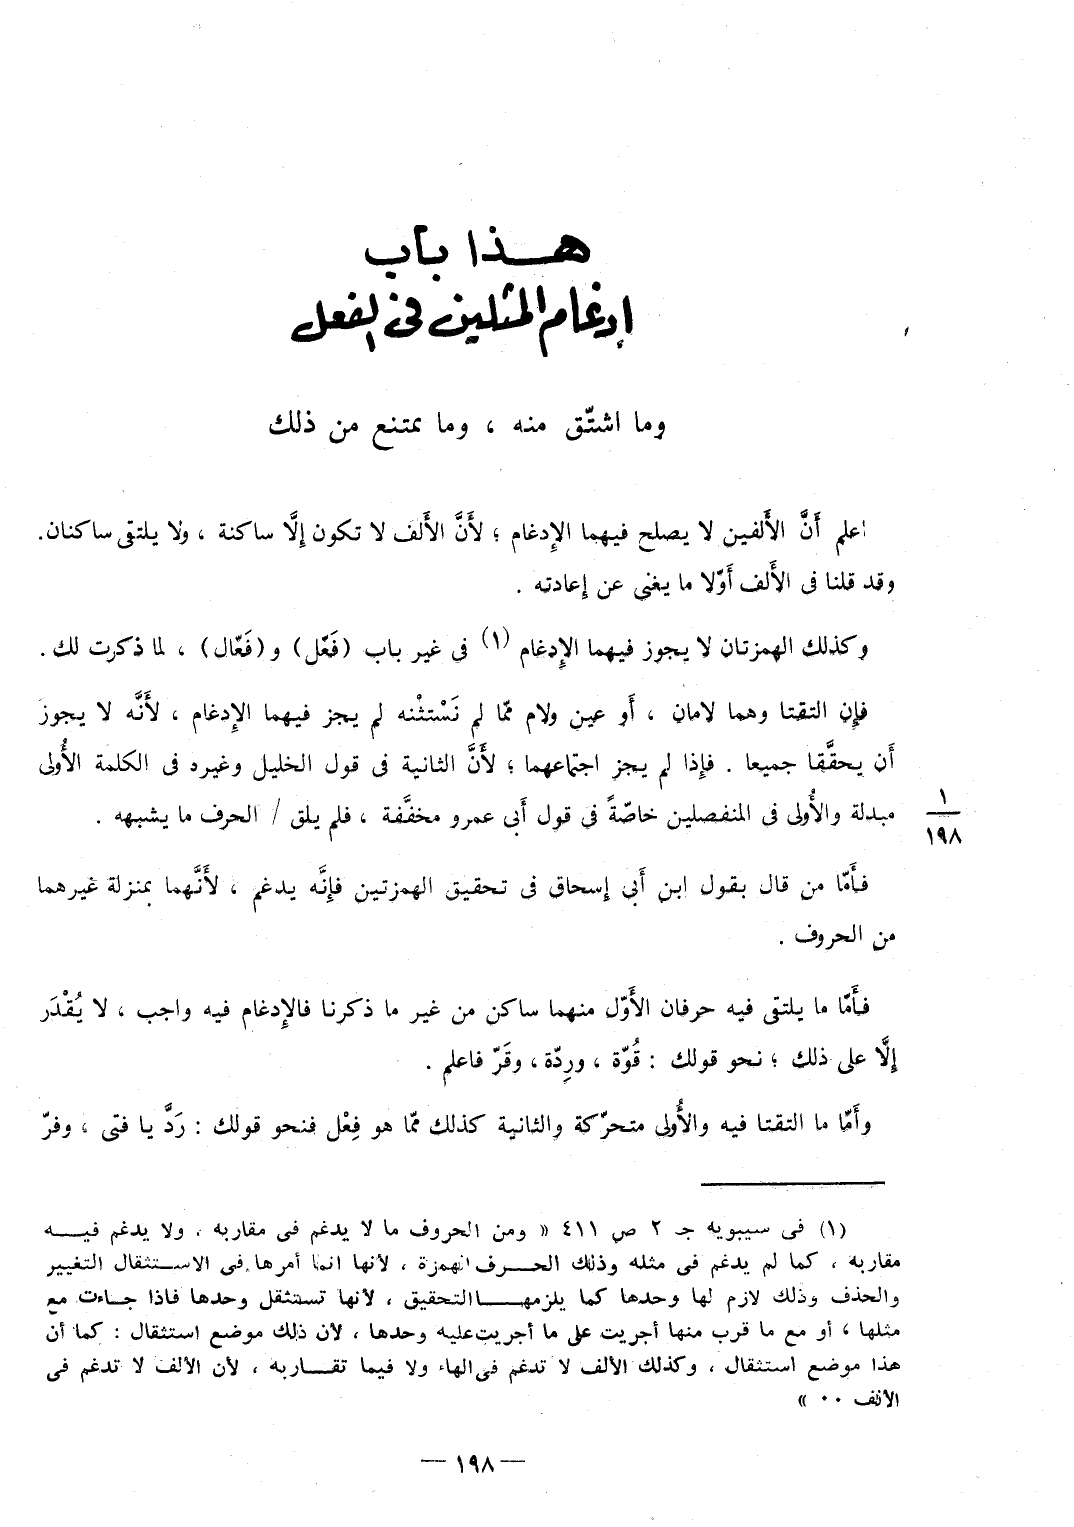 هـــذا باب
إدغام المثلين فى الفعل
وما اشتّق منه ، وما يمتنع من ذلك
اعلم أَنَّ الأَلفين لا يصلح فيهما الإِدغام ؛ لأَنَّ الأَلف لا تكون إِلَّا ساكنة ، ولا يلتقى ساكنان.
وقد قلنا فى الأَلف أَوّلا ما يغنى عن إِعادته .
وكذلك الهمزتان لا يجوز فيهما الإِدغام (١) فى غير باب (فَعّل) و(فَعّال) ، لما ذكرت لك .
فإِن التقتا وهما لامان ، أَو عين ولام ممّا لم نَسْتثْنه لم يجز فيهما الإِدغام ، لأَنَّه لا يجوز
أَن يحقَّقا جميعا . فإِذا لم يجز اجتماعهما ؛ لأَنَّ الثانية فى قول الخليل وغيره فى الكلمة الأُولى
مبدلة والأُولى فى المنفصلين خاصّةً فى قول أَبى عمرو مخفَّفة ، فلم يلق / الحرف ما يشبهه .
١
١٩٨
فأَمّا من قال بقول ابن أَبى إِسحاق فى تحقيق الهمزتين فإِنَّه يدغم ، لأَنَّهما بمنزلة غيرهما
من الحروف .
فأَمّا ما يلتقى فيه حرفان الأَوّل منهما ساكن من غير ما ذكرنا فالإِدغام فيه واجب ، لا يُقْدَر
إِلَّا على ذلك ؛ نحو قولك : قُوّة ، ورِدّة ، وقَرّ فاعلم .
وأَمّا ما التقتا فيه والأُولى متحرّكة والثانية كذلك ممّا هو فِعْل فنحو قولك : رَدَّ يا فتى ، وفرّ
(١) فى سيبويه جـ ٢ ص ٤١١ « ومن الحروف ما لا يدغم فى مقاربه ، ولا يدغم فيـــه
مقاربه ، كما لم يدغم فى مثله وذلك الحـــرف الهمزة ، لأنها انما أمرها فى الاســتثقال التغيير
والحذف وذلك لازم لها وحدها كما يلزمهـــا التحقيق ، لأنها تستثقل وحدها فاذا جــاءت مع
مثلها ، أو مع ما قرب منها أجريت على ما أجريت عليه وحدها ، لأن ذلك موضع استثقال : كما أن
هذا موضع استثقال ، وكذلك الألف لا تدغم فى الهاء ولا فيما تقــاربه ، لأن الألف لا تدغم فى
الألف ٠٠ »
— ١٩٨ —